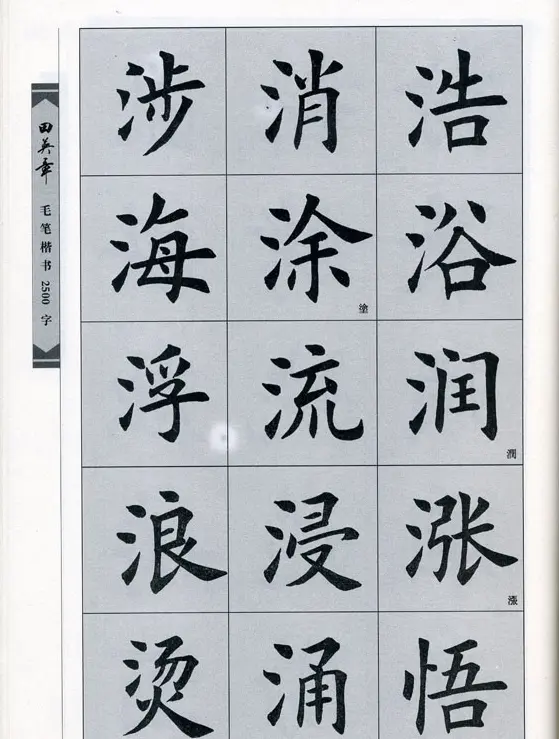 田英章
毛笔楷书 2500 字
涉 消 浩
海 涂 浴
塗
浮 流 润
潤
浪 浸 涨
漲
烫 涌 悟